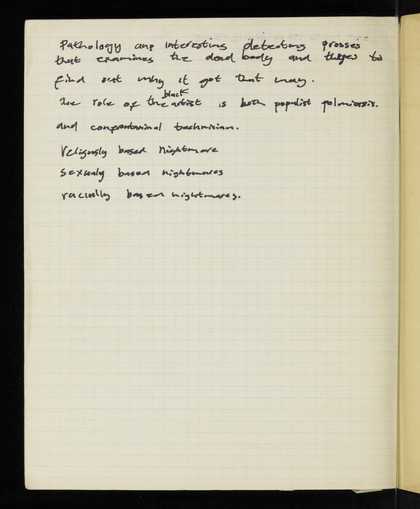 Pathology an interesting detecting prosses
that examines the dead body and trys to
find out why it got that way.
The role of the black artist is both populist polmicist.
and confrontational technician.
religiously based Nightmare
sexually based nightmares
racially based nightmares.